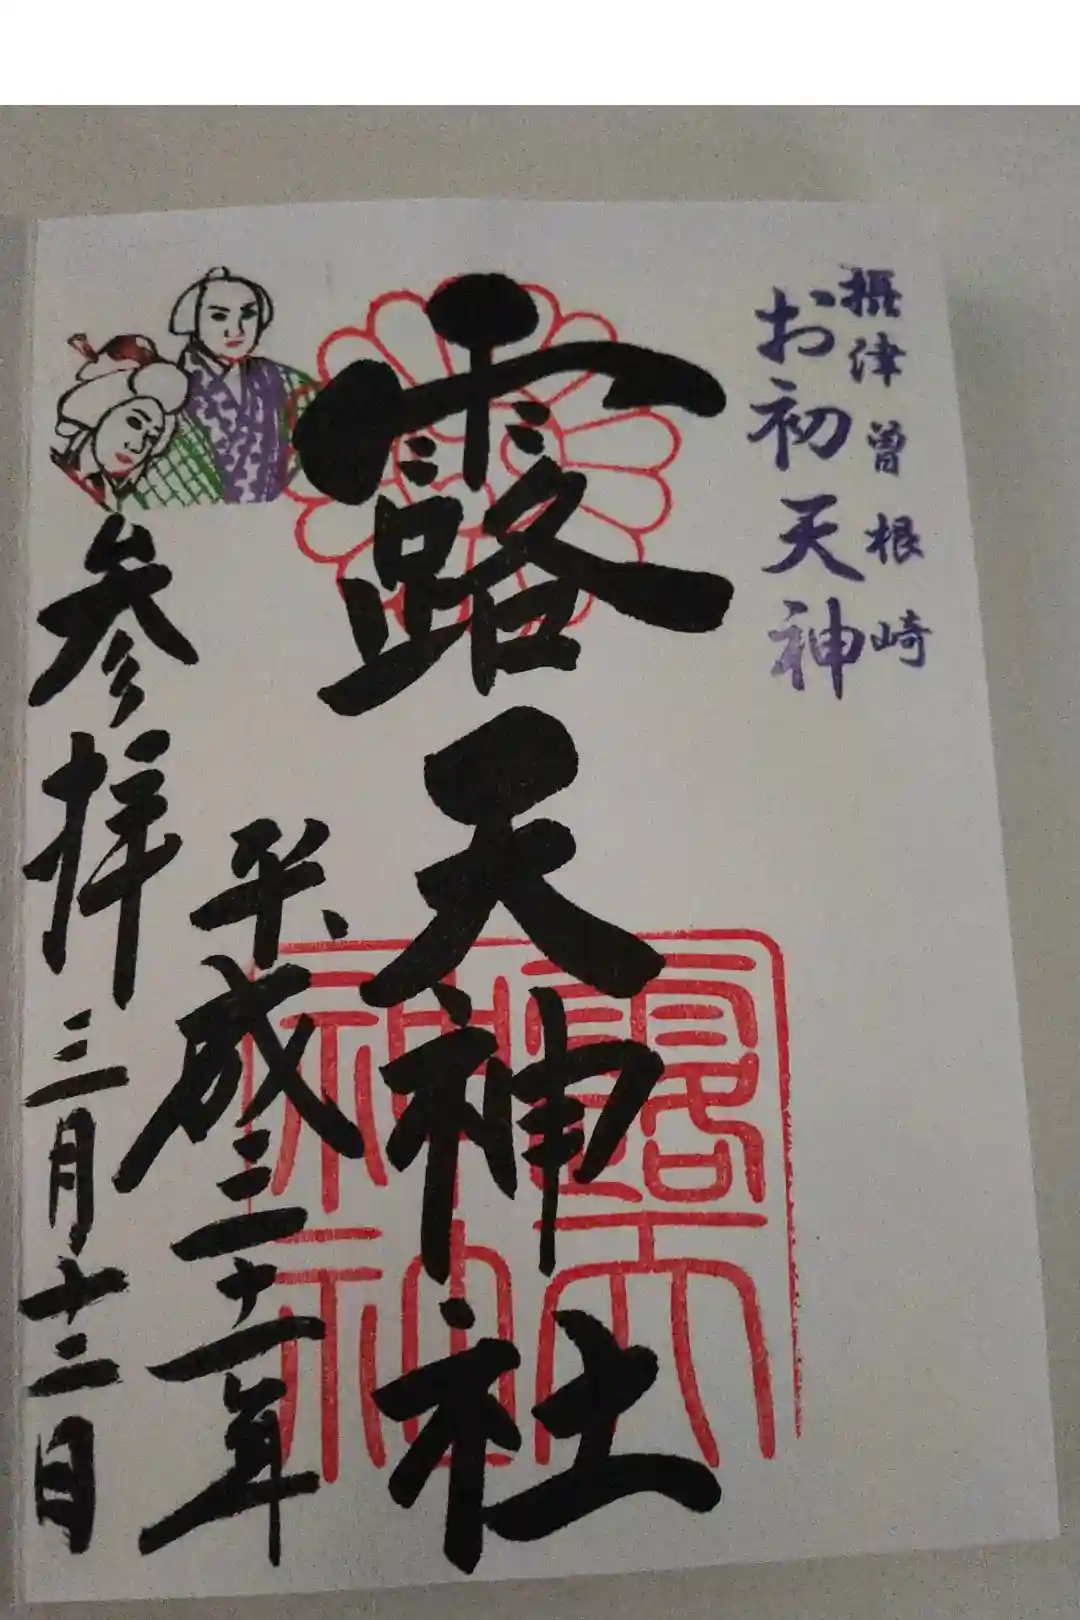 摂津曽根崎
お初天神
露天神社
平成三十一年
参拝三月十二日